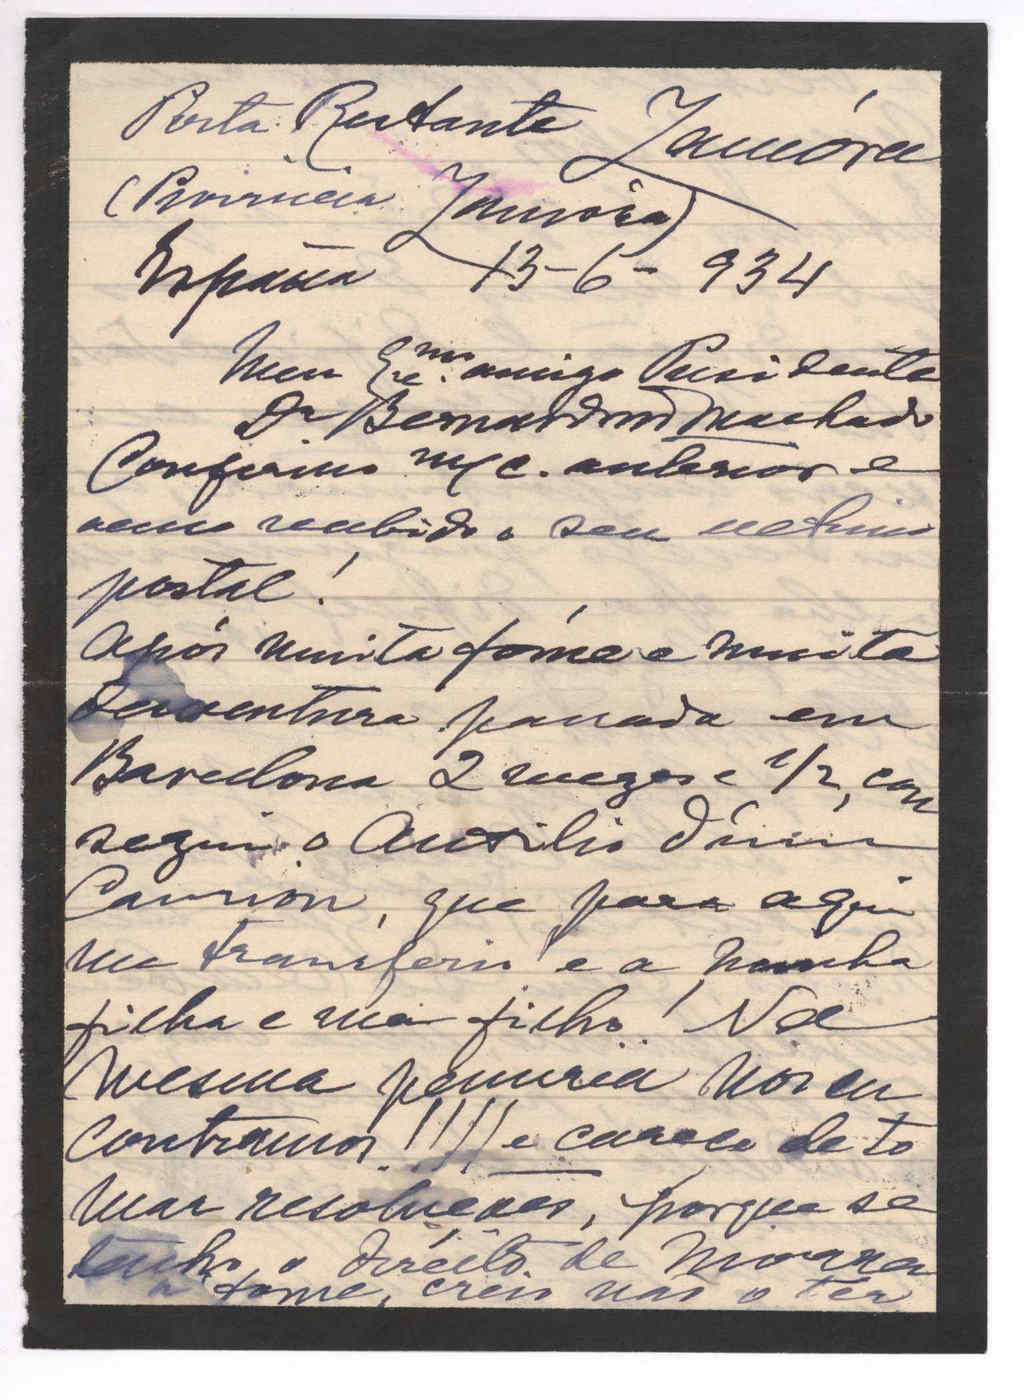 Posta Restante Zamóra
(Provincia Zamóra)
España 13-6-934
Meu Exc.mo amigo Presidente
Dr Bernardino Machado
Confirmo m/c. anterior e
acuso recebido o seu ultimo
postal!
Após muita fóme e muita
desventura passada em
Barcelona 2 mezes e 1/2, con
segui o Auxilio d'um
que para aqui
me transferiu e a minha
filha e meu filho! Na
mesma penuria nos en
contramos!!!! e careco de to
mar resoluções, porque se
tenho o direito de morrer
á fome, creio não o ter